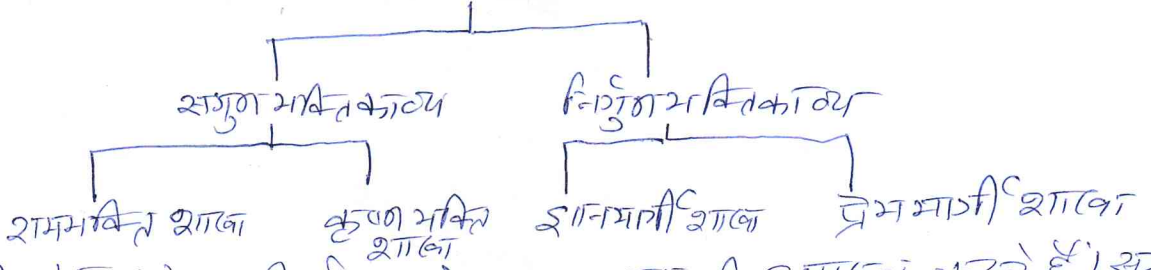 सगुण भक्तिकाव्य निर्गुण भक्तिकाव्य
रामभक्ति शाखा कृष्ण भक्ति शाखा ज्ञानमार्गी शाखा प्रेममार्गी शाखा